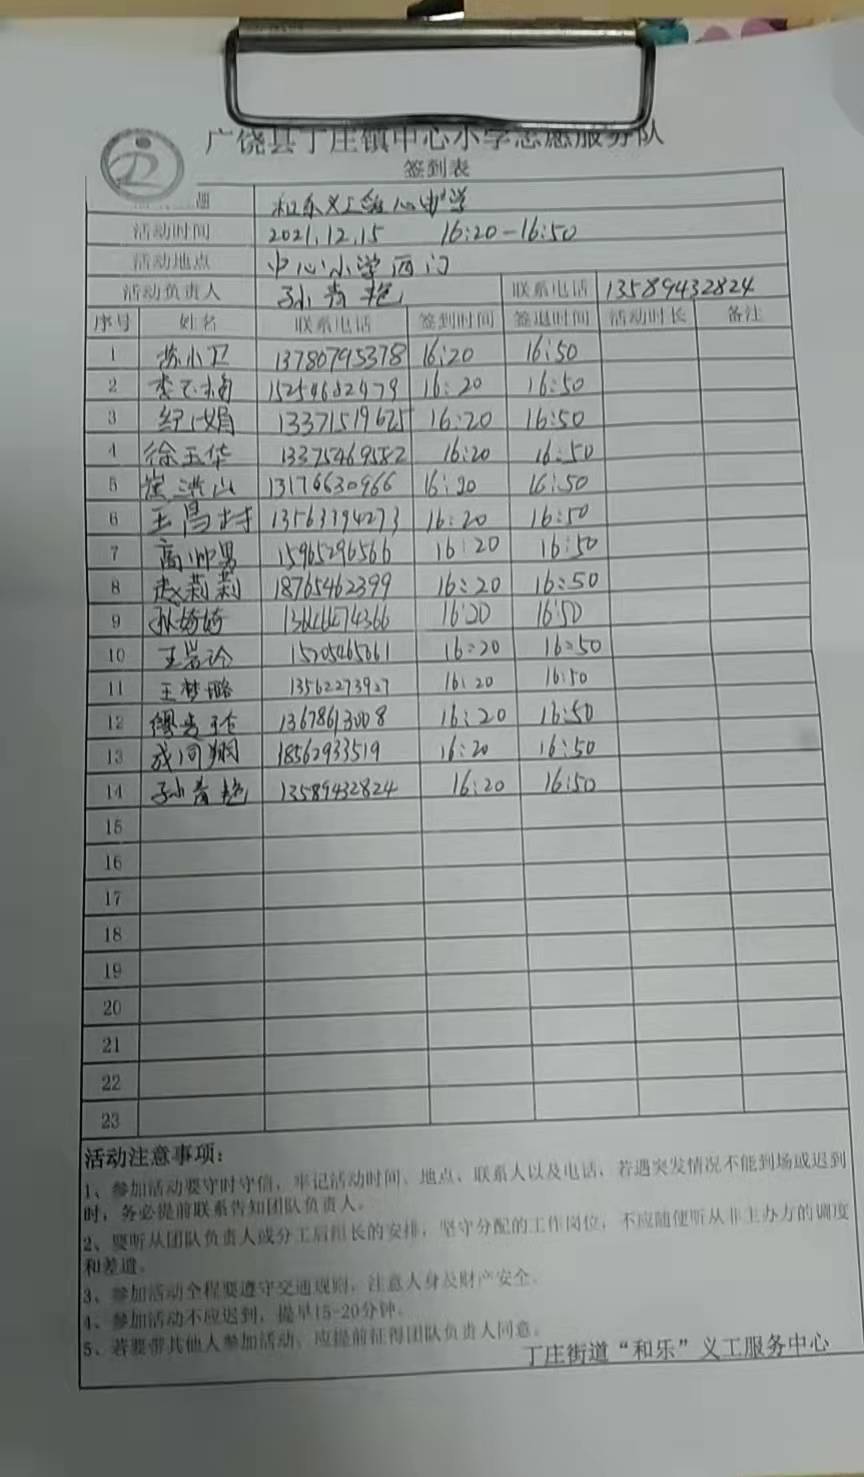 广饶县丁庄镇中心小学志愿服务队
签到表
题
活动时间 2021.12.15 16:20-16:50
活动地点 中心小学西门
活动负责人 孙青艳 联系电话 13589432824
序号 姓名 联系电话 签到时间 签退时间 活动时长 备注
1 苏小卫 13780795378 16:20 16:50
2 16:20 16:50
3 13371519625 16:20 16:50
4 徐玉华 13375469582 16:20 16:50
5 崔洪山 13176630966 16:20 16:50
6 16:20 16:50
7 高帅男 15965296566 16:20 16:50
8 赵莉莉 18765462399 16:20 16:50
9 孙婷婷 16:20 16:50
10 16:20 16:50
11 王梦璐 13562273927 16:20 16:50
12 16:20 16:50
13 18562933519 16:20 16:50
14 孙青艳 13589432824 16:20 16:50
15
16
17
18
19
20
21
22
23
活动注意事项：
1、参加活动要守时守信，牢记活动时间、地点、联系人以及电话，若遇突发情况不能到场或迟到
时，务必提前联系告知团队负责人。
2、要听从团队负责人或分工后组长的安排，坚守分配的工作岗位，不应随便听从非主办方的调度
和差遣。
3、参加活动全程要遵守交通规则，注意人身及财产安全。
4、参加活动不应迟到，提早15-20分钟。
5、若要带其他人参加活动，应提前征得团队负责人同意。
丁庄街道“和乐”义工服务中心